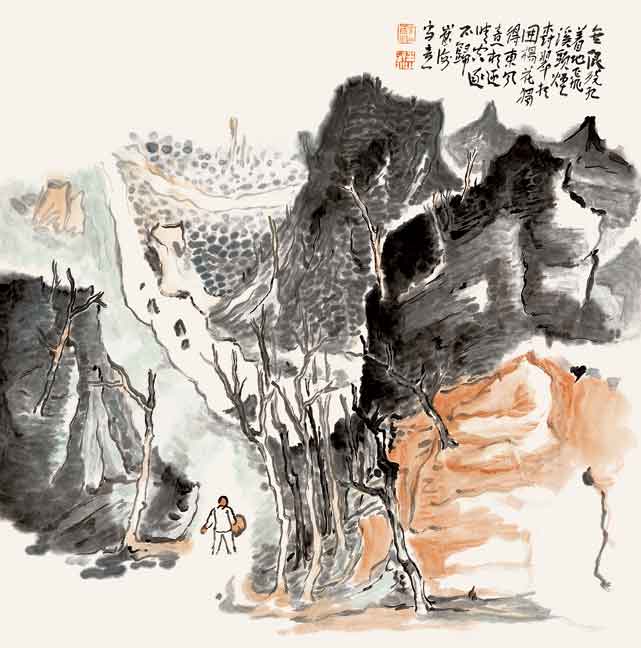 無限殘紅
着地飛
溪頭煙
樹翠相
圍楊花獨
得東風
意相逐
晴空去
不歸